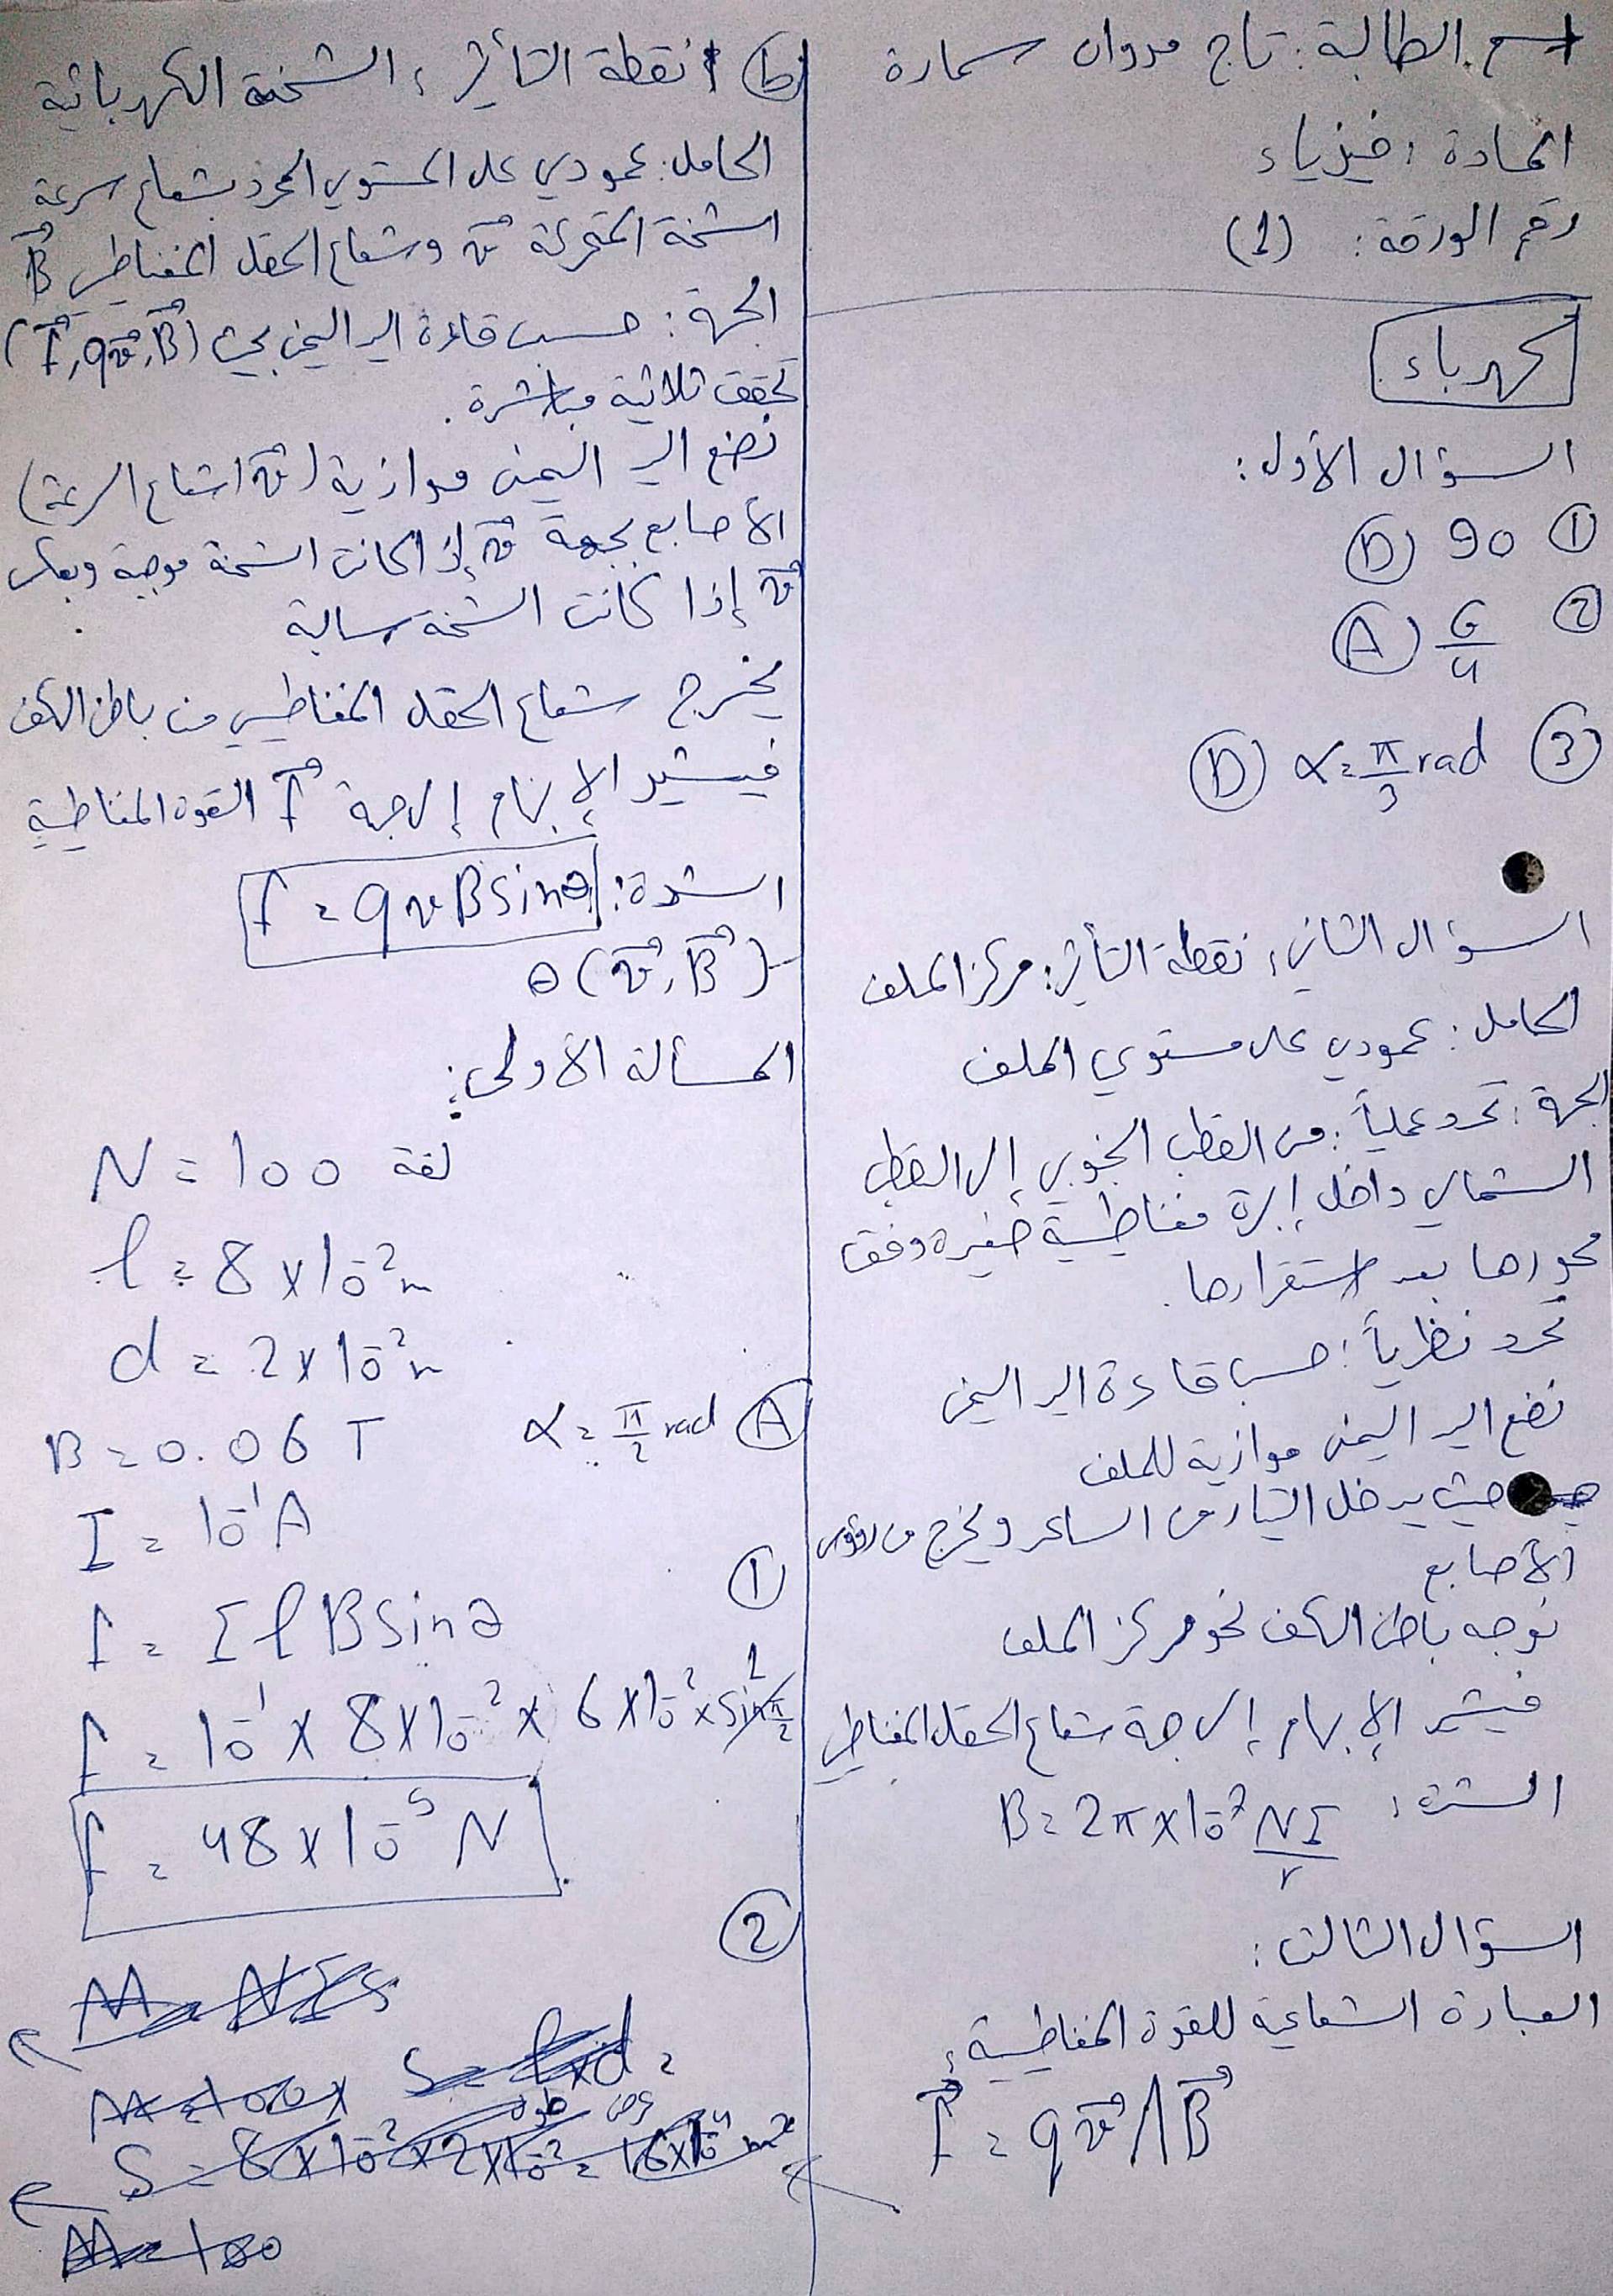 اسم الطالبة: تاج مروان سمارة
المادة: فيزياء
رقم الورقة: (1)
كهرباء
السؤال الأول:
① 90 (D)
② G/4 (A)
③ α = π/3 rad (D)
السؤال الثاني: نقطة التأثير: مركز الملف
الحامل: عمودي على مستوي الملف
الجهة: تحدد عملياً: من القطب الجنوبي إلى القطب
الشمالي داخل إبرة مغناطيسية صغيرة وفق
محورها بعد استقرارها.
تحدد نظرياً: حسب قاعدة اليد اليمنى
نضع اليد اليمنى موازية للملف
حيث يدخل التيار من الساعد ويخرج من رؤوس
الأصابع
نوجه باطن الكف نحو مركز الملف
فيشير الإبهام إلى جهة شعاع الحقل المغناطيسي
الشدة: B = 2π × 10⁻⁷ NI/r
السؤال الثالث:
العبارة الشعاعية للقوة المغناطيسية:
F⃗ = q v⃗ ∧ B⃗
ط) نقطة التأثير: الشحنة الكهربائية
الحامل: عمودي على المستوي المحدد بشعاع سرعة
الشحنة المتحركة v⃗ وشعاع الحقل المغناطيسي B⃗
الجهة: حسب قاعدة اليد اليمنى بحيث (F⃗, qv⃗, B⃗)
تحقق ثلاثية مباشرة.
نضع اليد اليمنى موازية (v⃗ شعاع السرعة)
الأصابع بجهة v⃗ إذا كانت الشحنة موجبة وبعكس
v⃗ إذا كانت الشحنة سالبة
يخرج شعاع الحقل المغناطيسي من باطن الكف
فيشير الإبهام إلى جهة F⃗ القوة المغناطيسية
الشدة: F = qvB sinθ
θ (v⃗, B⃗)
المسألة الأولى:
N = 100 لفة
l = 8 × 10⁻² m
d = 2 × 10⁻² m
B = 0.06 T
α = π/2 rad (A)
I = 10⁻¹ A
①
F = I l B sinθ
F = 10⁻¹ × 8 × 10⁻² × 6 × 10⁻² × sin π/2 1
F = 48 × 10⁻⁵ N
②
M = NIS
M = 100 × S = l × d =
طول عرض
S = 8 × 10⁻² × 2 × 10⁻² = 16 × 10⁻⁴ m²
M = 100